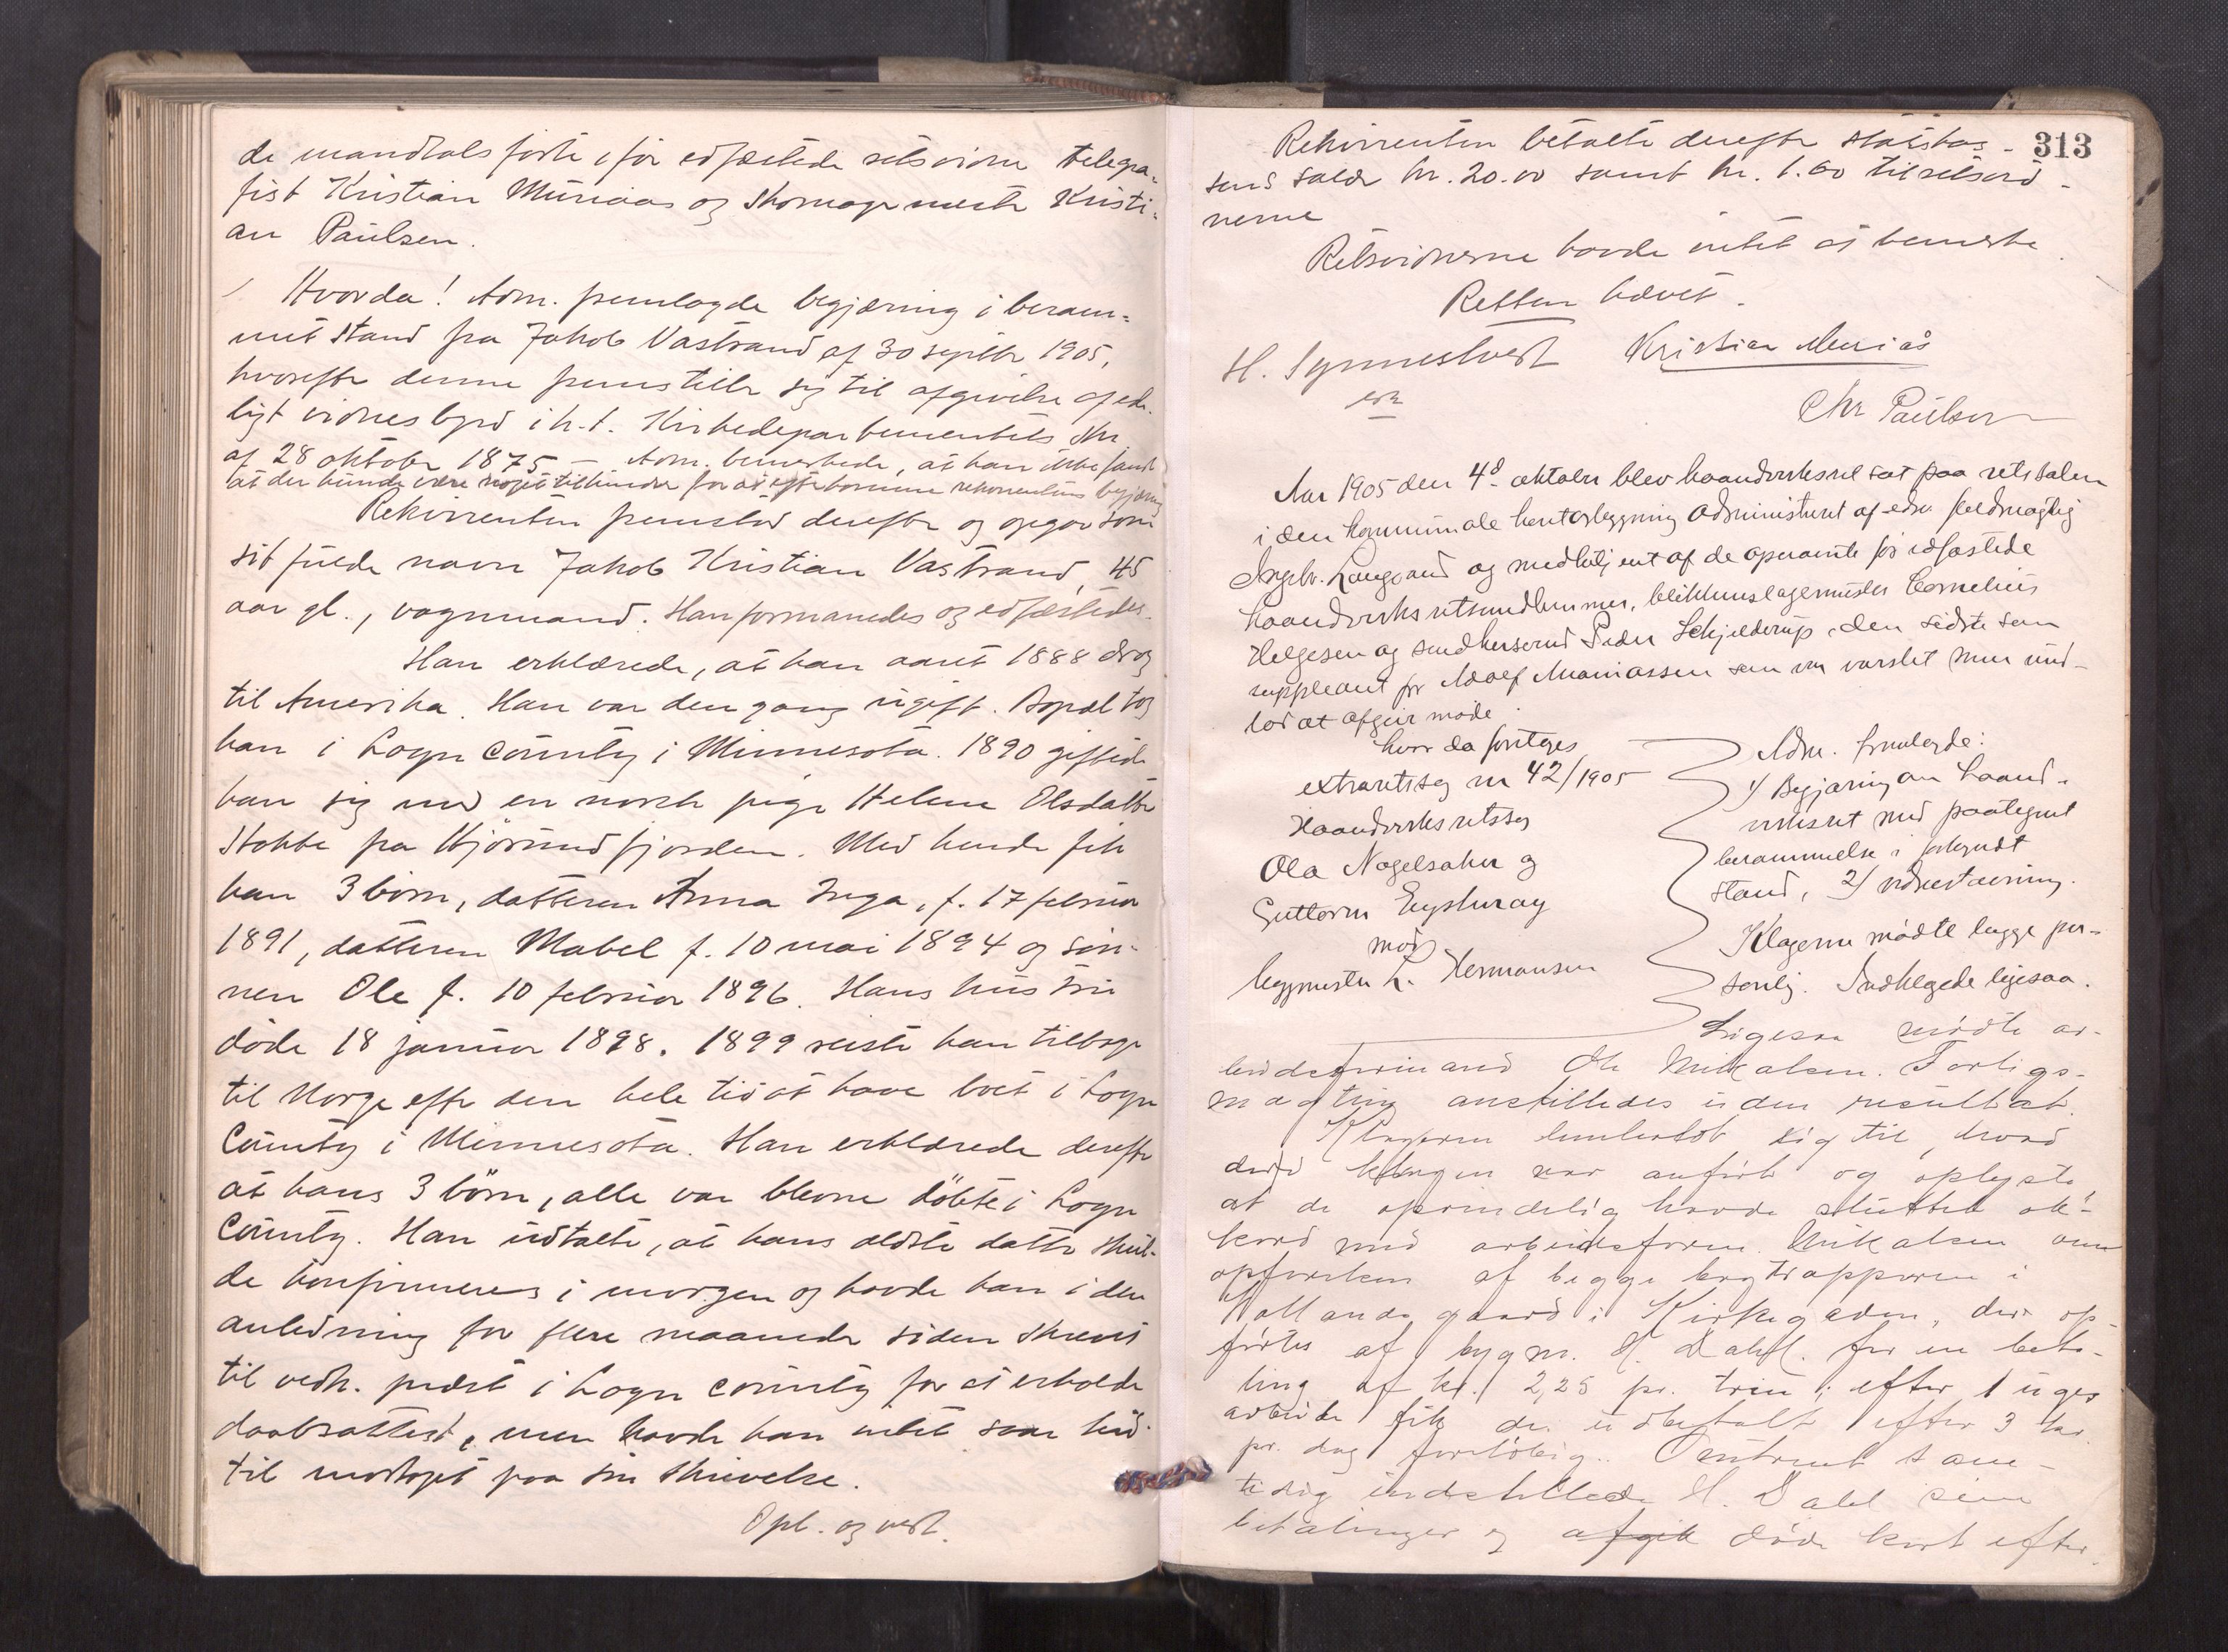 de mandtalsførte, før edfæstede retsvidner telegra-
fist Kristian Muriaas og skomagermester Kristi-
an Paulsen.
Hvorda! Adm. fremlagde begjæring i beram-
met stand fra Jakob Vastrand af 30 septbr 1905,
hvorefter denne fremstiller sig til afgivelse af ed-
ligt vidnesbyrd i h.t. Kirkedepartementets skr.
af 28 oktober 1875 – Adm. bemerkede, at han ikke fandt
at der kunde være noget tilhinder for at efterkomme rekvirentens begjæring
Rekvirenten fremstod derefter og opgav som
sit fulde navn Jakob Kristian Vastrand, 45
aar gl., vognmand. Han formanedes og edfæstedes.
Han erklærede, at han aaret 1888 drog
til Amerika. Han var den gang ugift. Bopæl tog
han i Logn County i Minnesota. 1890 giftede
han sig med en norsk pige Helene Olsdatter
Stokke fra Hjørundfjorden. Med hende fik
han 3 børn, datteren Anna Inga, f. 17 februar
1891, datteren Mabel f. 10 mai 1894 og søn-
nen Ole f. 10 februar 1896. Hans hustru
døde 18 januar 1898. 1899 reiste han tilbage
til Norge efter den hele tid at have boet i Logn
County i Minnesota. Han erklærede derefter
at hans 3 børn, alle var blevne døbte i Logn
County. Han udtalte, at hans ældste datter skul-
de konfirmeres i morgen og havde han i den
anledning for flere maaneder siden skrevet
til vedk. prest i Logn county for at erholde
daabsattest, men havde han intet svar hid-
til modtaget paa sin skrivelse.
Opl. og vedt.
313
Rekvirenten betalte derefter statskas-
sens salær kr. 20.00 samt kr. 1.60 til retsvid-
nerne
Retsvidnerne havde intet at bemerke.
Retten hævet.
H. Synnestvedt Kristian Muriås
Chr Paulsen
Aar 1905 den 4d oktober blev haandverksret sat paa retssalen
i den kommunale kontorbygning administreret af edsv. fuldmægtig
Ingebr. Langsand og medbetjent af de opnævnte før edfæstede
haandverksretsmedlemmer, blikkenslagermester Cornelius
Helgesen og snedkersvend Peder Schjelderup, den sidste som
suppleant for Adolf Ananiassen som var varslet men und-
lod at afgive møde.
hvor da foretoges
extraretssag nr 42/1905
Haandverksretssag
Ola Nogelsaker og
Guttorm Eysturoy
mod
bygmester L. Hermansen
Adm. fremlagde:
1/ Begjæring om haand-
verksret med paategnet
berammelse i forkyndt
stand, 2/ vidnestævning.
Klagerne mødte begge per-
sonlig. Indklagede ligesaa.
Ligesaa mødte ar-
beidsformand Ole Mikalsen. Forligs-
mægling anstilledes uden resultat.
Klagerne henholdt sig til, hvad
der i klagen var anført og oplyste
at de oprindelig havde sluttet ak-
kord med arbeidsform. Mikalsen om
opførelsen af begge bagtrapperne i
Hollands gaard i Kirkegaden, der op-
førtes af bygm. H. Dahl. for en beta-
ling af kr. 2,25 pr. trin; efter 1 uges
arbeide fik de udbetalt efter 3 kr.
pr. dag foreløbig. Omtrent sam-
tidig indstillede H. Dahl sine
betalinger og afgik døde kort efter.